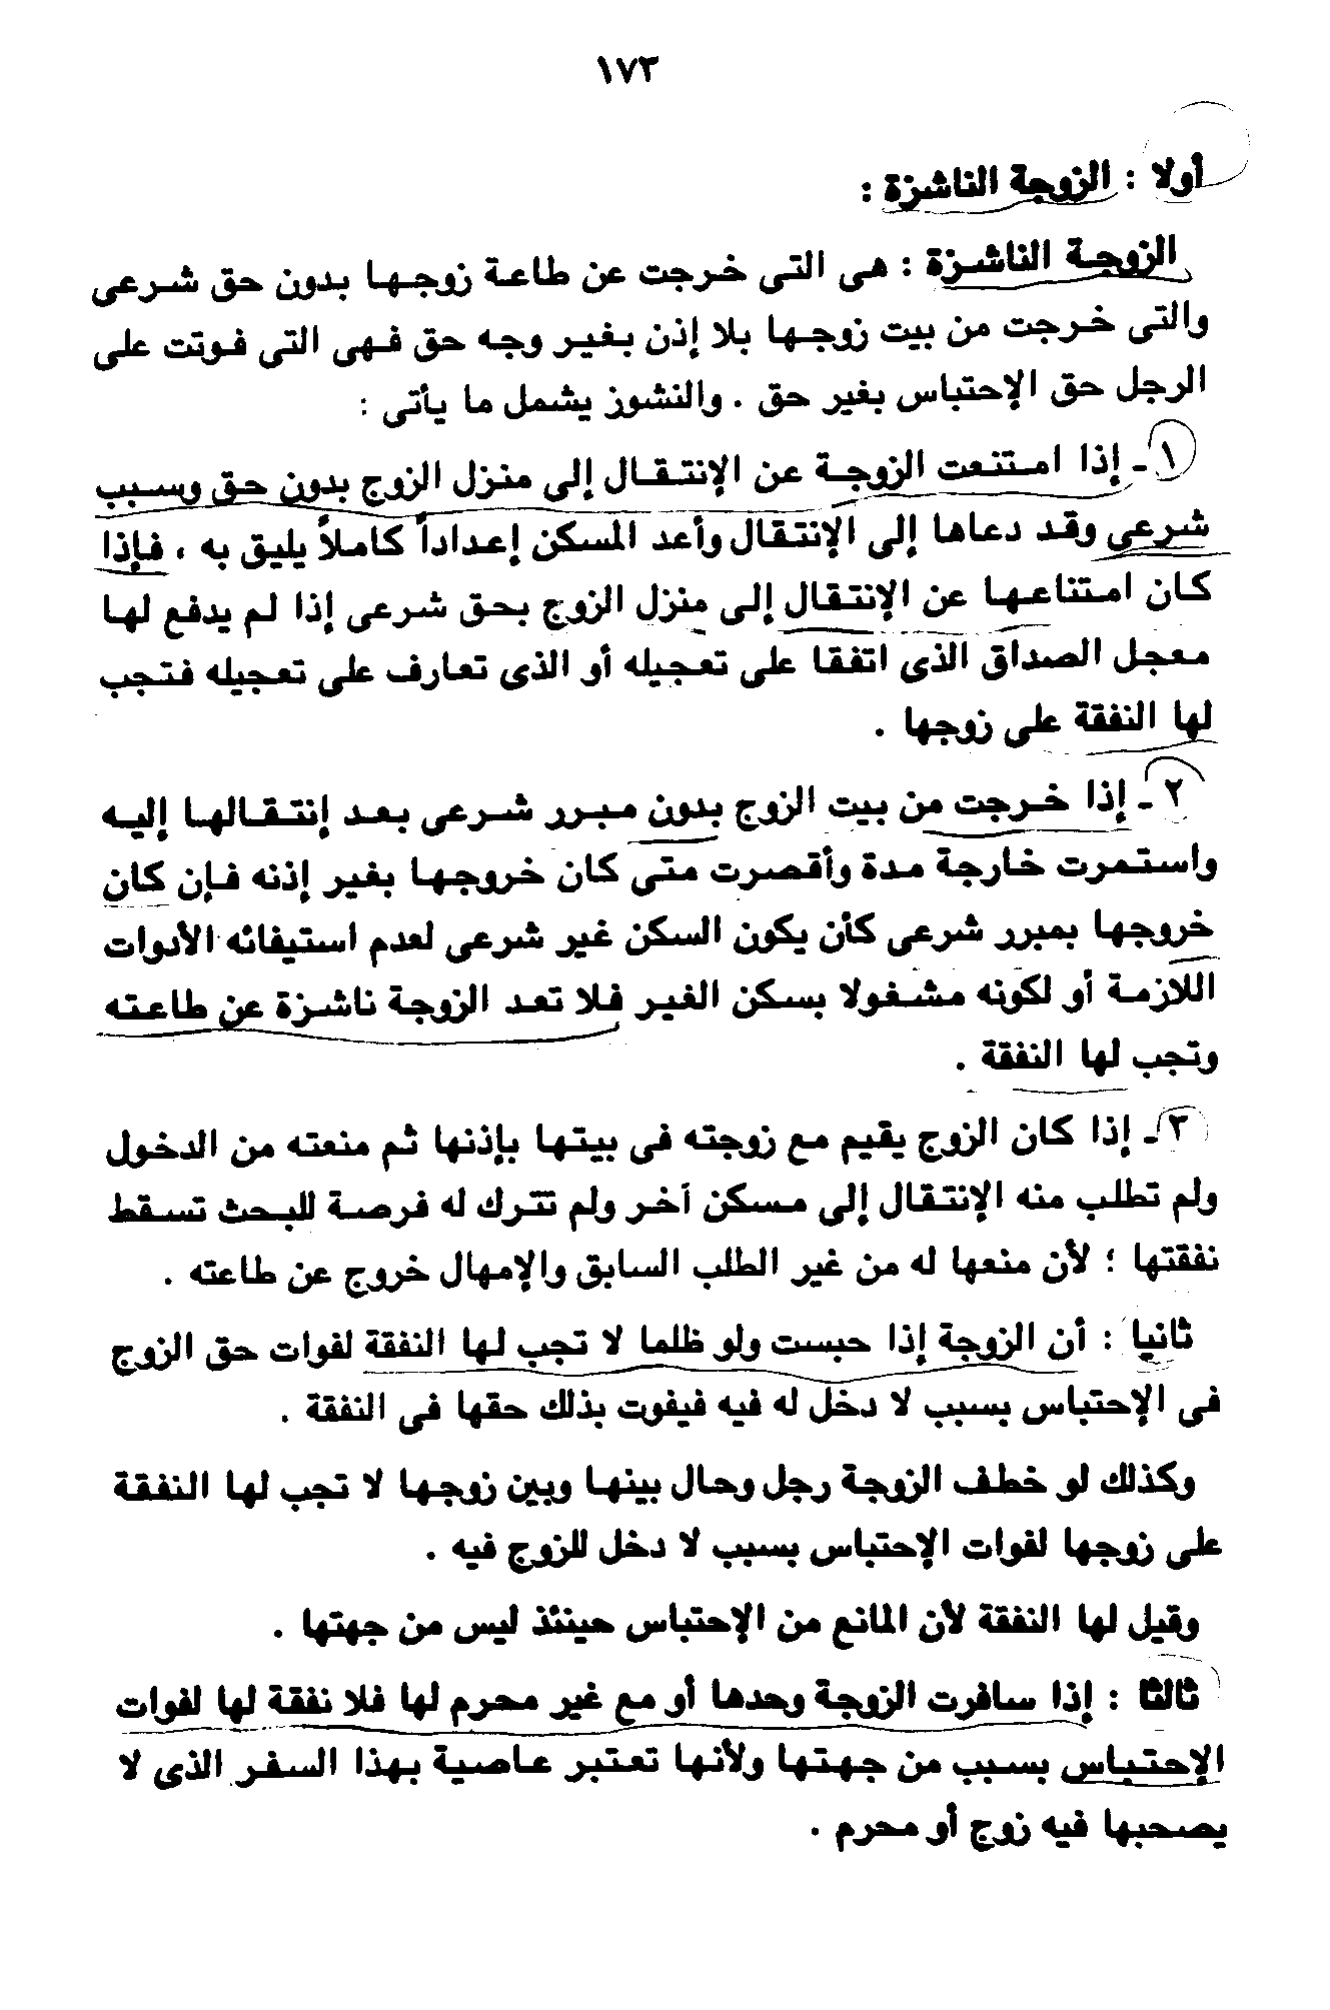 ١٧٣
أولا : الزوجة الناشزة :
الزوجة الناشزة : هى التى خرجت عن طاعة زوجها بدون حق شرعى
والتى خرجت من بيت زوجها بلا إذن بغير وجه حق فهى التى فوتت على
الرجل حق الإحتباس بغير حق . والنشوز يشمل ما يأتى :
١ـ إذا امتنعت الزوجة عن الإنتقال إلى منزل الزوج بدون حق وسبب
شرعى وقد دعاها إلى الإنتقال وأعد المسكن إعداداً كاملاً يليق به ، فإذا
كان امتناعها عن الإنتقال إلى منزل الزوج بحق شرعى إذا لم يدفع لها
معجل الصداق الذى اتفقا على تعجيله أو الذى تعارف على تعجيله فتجب
لها النفقة على زوجها .
٢ـ إذا خرجت من بيت الزوج بدون مبرر شرعى بعد إنتقالها إليه
واستمرت خارجة مدة وأقصرت متى كان خروجها بغير إذنه فإن كان
خروجها بمبرر شرعى كأن يكون السكن غير شرعى لعدم استيفائه الأدوات
اللازمة أو لكونه مشغولا بسكن الغير فلا تعد الزوجة ناشزة عن طاعته
وتجب لها النفقة .
٣ـ إذا كان الزوج يقيم مع زوجته فى بيتها بإذنها ثم منعته من الدخول
ولم تطلب منه الإنتقال إلى مسكن أخر ولم تترك له فرصة للبحث تسقط
نفقتها ؛ لأن منعها له من غير الطلب السابق والإمهال خروج عن طاعته .
ثانيا : أن الزوجة إذا حبست ولو ظلما لا تجب لها النفقة لفوات حق الزوج
فى الإحتباس بسبب لا دخل له فيه فيفوت بذلك حقها فى النفقة .
وكذلك لو خطف الزوجة رجل وحال بينها وبين زوجها لا تجب لها النفقة
على زوجها لفوات الإحتباس بسبب لا دخل للزوج فيه .
وقيل لها النفقة لأن المانع من الإحتباس حينئذ ليس من جهتها .
ثالثا : إذا سافرت الزوجة وحدها أو مع غير محرم لها فلا نفقة لها لفوات
الإحتباس بسبب من جهتها ولأنها تعتبر عاصية بهذا السفر الذى لا
يصحبها فيه زوج أو محرم .